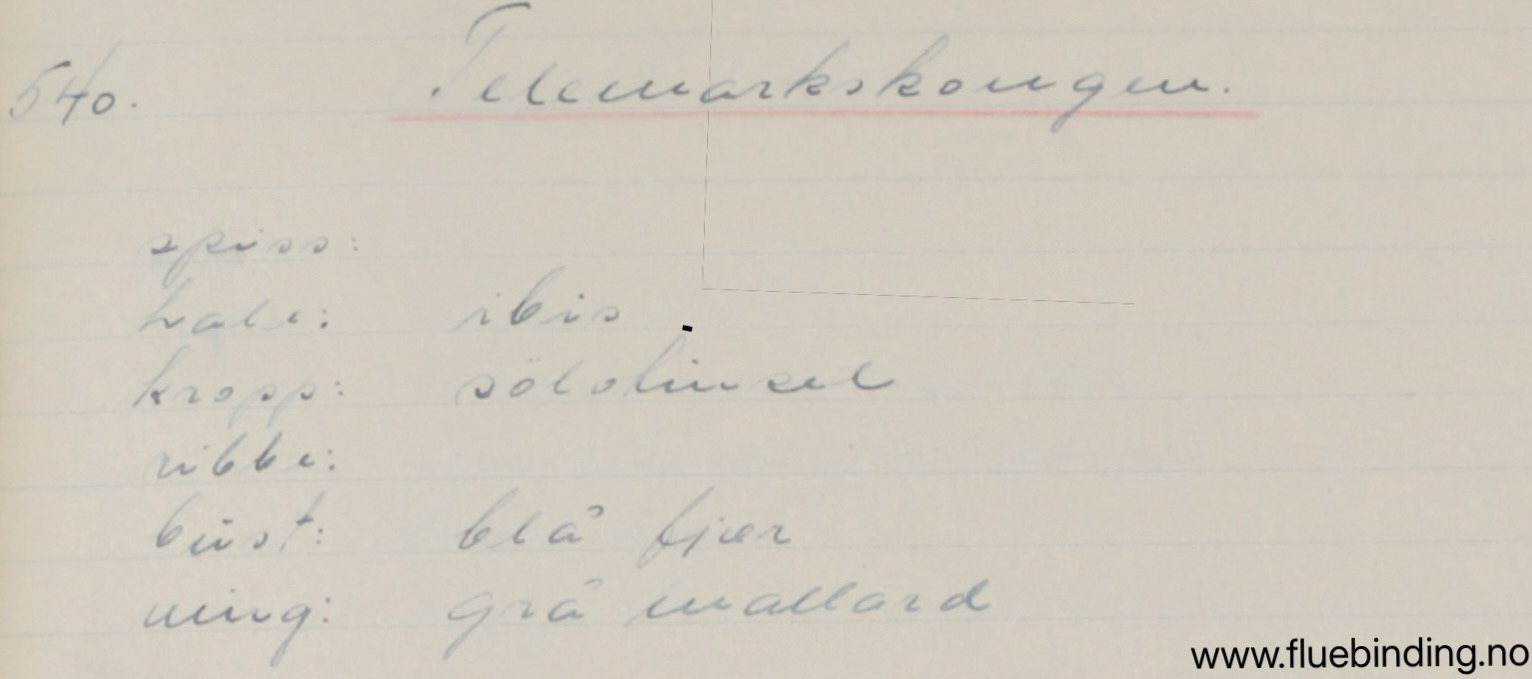 540. Telemarkskongen.
spiss:
hale: ibis
kropp: sölvtinsel
ribbe:
büst: blå fjær
ving: grå mallard
www.fluebinding.no